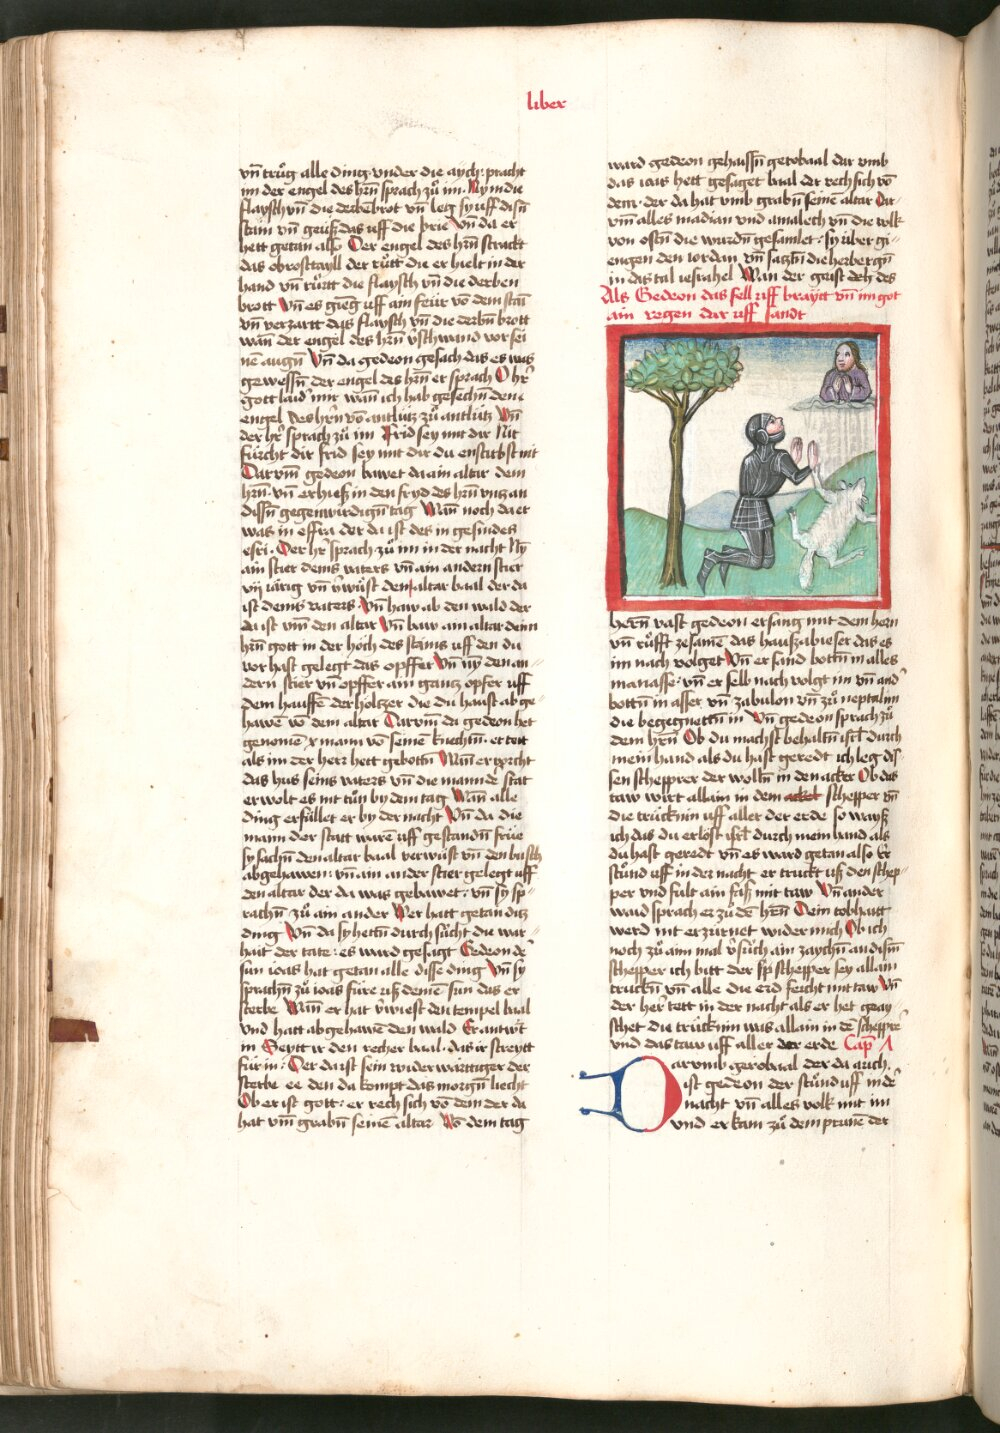 liber
vn̄ trůg alle ding vnder die aych: pracht
im der engel des hr̄n sprach zů im. Nym die
flaysch vn̄ die derbebrot vn̄ leg sy vff disn̄
stain vn̄ geuß das vff die prie Vn̄ da er
hett getan also Der engel des hr̄n strackt
das obrosttayll der růtt die er hielt in der
hand vn̄ rürtt die flaysch vn̄ die derben
brott Vn̄ es gieg vff ain feür vō dem stai
vn̄ verzartt dis flaysch vn̄ die derbn̄ brott
wan̄ der engel des hr̄n v̄schwand vor sei
nē augn̄ Vn̄ da gedeon gesach das es was
gewessn̄ der engel des hr̄n er sprach O hr̄
gott laid mir wan̄ ich hab gesechn̄ den
engel des hr̄n vō antlütz zů antlütz Vn̄
der hr̄ sprach zů im Frid sey mit dir Nit
fürcht dir frid sey mit dir du enstirbst nit
Darvm̄ gedeon bawet da ain altar dem
hr̄n. vn̄ er hieß in den fryd des hr̄n vntz an
dissn̄ gegenwürdign̄ tag Wan̄ noch da er
was in effra der da ist des in gesindes
esri. Der hr̄ sprach zů im in der nacht Ny
ain stier deins vaters vn̄ ain andern stier
vij iärig vn̄ v̄wüst den altar baal der da
ist deins vaters. Vn̄ haw ab den wald der
da ist vm̄ den altar Vn̄ baw ain altar deim
hr̄n gott in der höch des stains vff den du
vor hast gelegt das opffer Vn̄ ny den an
dern stier vn̄ opffer ain gantz opfer vff
dem hauffē der höltzer die du haust ab ge
hawē vō dem altar Darvm̄ da gedeon het
genomē x mann vō seinē knechtn̄. er tett
als im der herr hett gebottn̄ Wan̄ er vorcht
das hus seins vaters vn̄ die mann de stat
er wolt es nit tůn by dem tag Wan̄ alle
ding erfüllet er by der nacht Vn̄ da die
mann der statt warē vff gestandn̄ früe
sy sachn̄ den altar baal verwüst vn̄ den busch
abgehawen: vn̄ ain ander stier gelegt vff
den altar der da was gebawet: vn̄ sy sp
rachn̄ zů ain ander Wer hatt getan ditz
ding Vn̄ da sy hettn̄ durch sücht die war
hait der tate: es ward gesagt Gedeon dē
sun ioas hat getan alle disse ding Vn̄ sy
sprachn̄ zů ioas füre vß deinē sun das er
sterbe Wan̄ er hat v̄wiest den tempel baal
vnd hatt abgehawē den wald Er antw̄t
in Seytt ir den recher baal. das ir streytt
für in: Der da ist sein wider wärttiger der
sterbe ee den da kompt das morgn̄ liecht
Ob er ist gott: er rech sich vō dem der da
hat vm̄ grabn̄ seinē altar Vō dem tag
ward gedeon gehaissn̄ gerobaal dar vmb
das ioas hett gesaget baal der rech sich vō
dem. der da hat vmb grabn̄ seine altar Dar
vm̄ alles madian vnd amalech vn̄ die volk
von ostn̄ die wurdn̄ gesamlet: sy über gi
engen den iordan vn̄ satztn̄ die herbergn̄
in das tal iesrahel Wan der geist deß des
Als Gedeon das fell vff braytt vn̄ im got
ain regen dar vff sandt
herrn̄ vast gedeon er sang mit dem horn
vn̄ růfft zesamē das hauß abieser das es
im nach volget Vn̄ er sand bottn̄ in alles
manasse: vn̄ er selb nach volgt im vn̄ and
bottn̄ in asser vn̄ zabulon vn̄ zů neptalim
die begegnettn̄ in Vn̄ gedeon sprach zů
dem hr̄n Ob du machst behaltn̄ isrl̄ durch
mein hand als du hast geredt ich leg dis
sen schepprer der wolln̄ in den acker Ob das
taw wirt allain in dem acker schepper vn̄
die trücknin vff aller der erde so wayß
ich das du erlöst isrl̄ durch mein hand als
du hast geredt vn̄ es ward getan also Er
stůnd uff in der nacht er truckt uß den schep
per vnd fult ain faß mit taw Vn̄ ander
waid sprach er zů dē hr̄n Dein tobhaitt
werd nit erzürnet wider mich Ob ich
noch zů aim mal v̄sůch ain zaychn̄ an disn̄
schepper ich bitt der spr̄ schepper sey allain
truckn̄ vn̄ alle die erd feicht mit taw Vn̄
der her̄ tett in der nacht als er het geay
schet die trücknin was allain in dē scheppre
vnd das taw uff aller der erde Cap̄
Darvmb gerobaal der da auch.
ist gedeon der stůnd uff in dē
nacht vn̄ alles volk mit im
vnd er kam zů dem prunē der